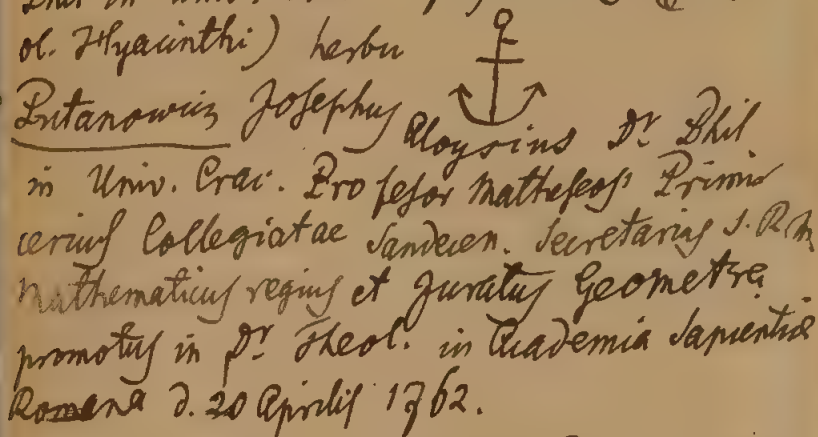 ol. Hyacinthi) herbu
Putanowicz Josephus Aloysius Dr Phil
in Univ. Crac. Professor Matheseos Primi
cerius Collegiatae Sandecen. Secretarius S. R. M
Mathematicus regius et Juratus Geometra
promotus in Dr Theol. in Academia Sapientiae
Romana d. 20 Aprilis 1762.